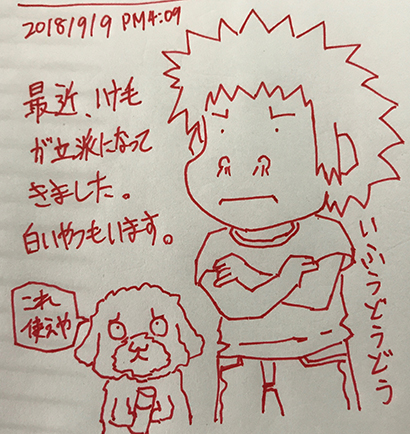 2018/9/9 PM4:09
最近、ハナ毛
が立派になって
きました。
白いやつもいます。
いふうどうどう
これ
使えや